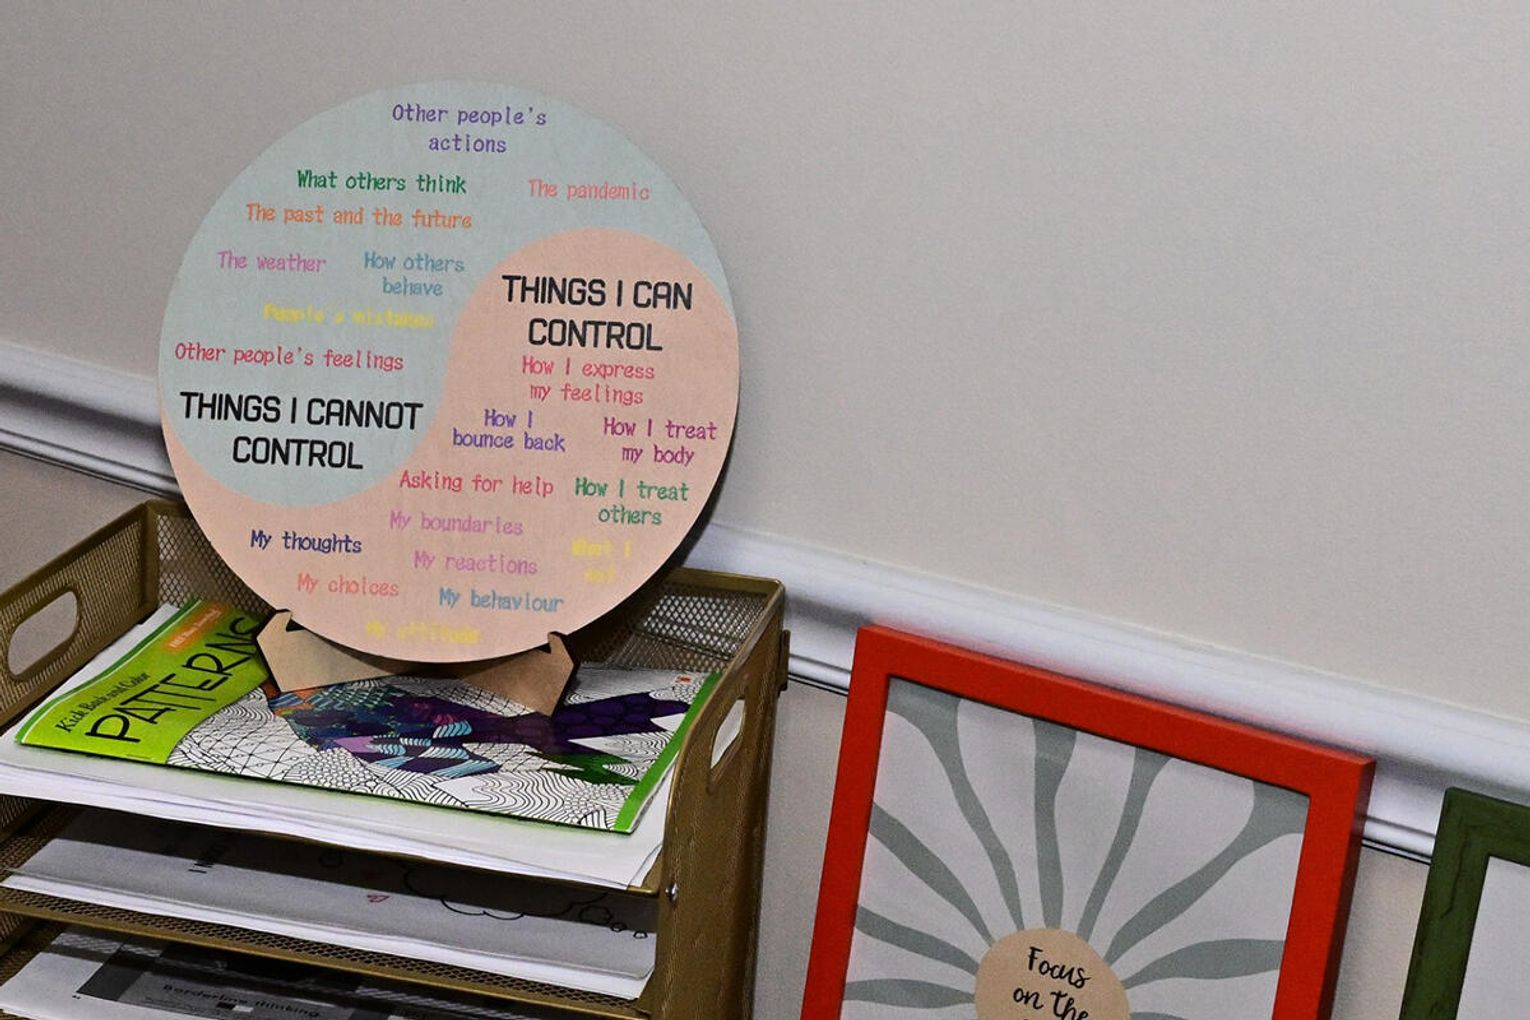 Other people's
actions
What others think
The pandemic
The past and the future
The weather
How others
behave
People's mistakes
Other people's feelings
THINGS I CANNOT
CONTROL
THINGS I CAN
CONTROL
How I express
my feelings
How I
bounce back
How I treat
my body
Asking for help
How I treat
others
My boundaries
My thoughts
What I
My reactions
My choices
My behaviour
My attitude
Kick Back and Color
PATTERNS
Borderline thinking
Focus
on the